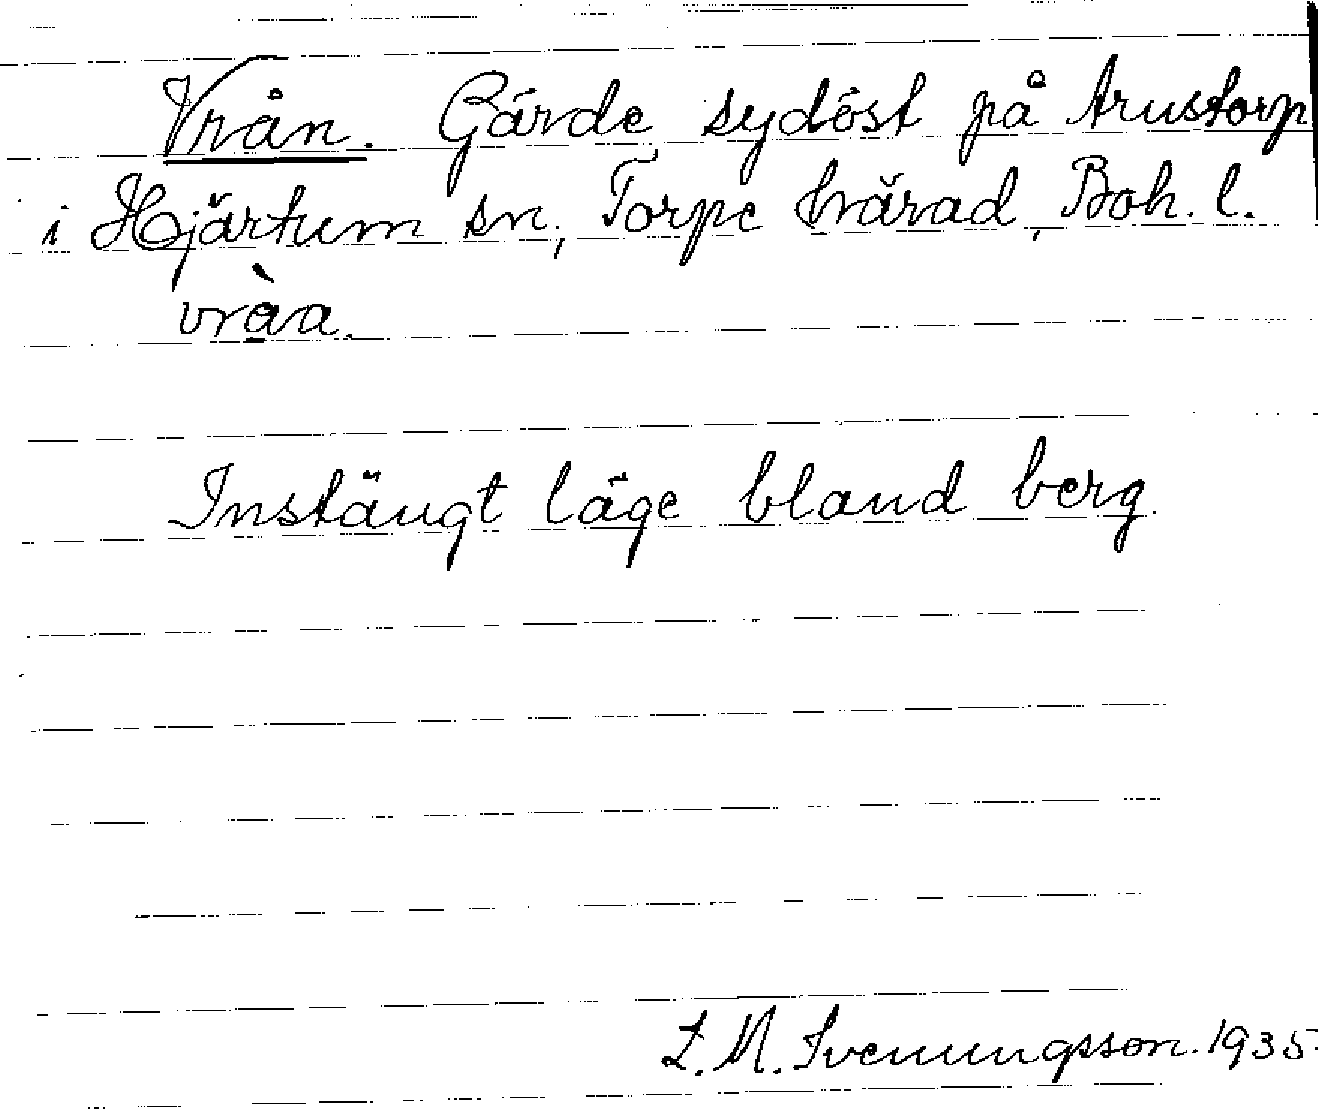 Vrån. Gärde sydöst på Arustorp
i Hjärtum sn, Torpe härad, Boh. l.
vràa.
Instängt läge bland berg.
L. M. Svenungsson. 1935.